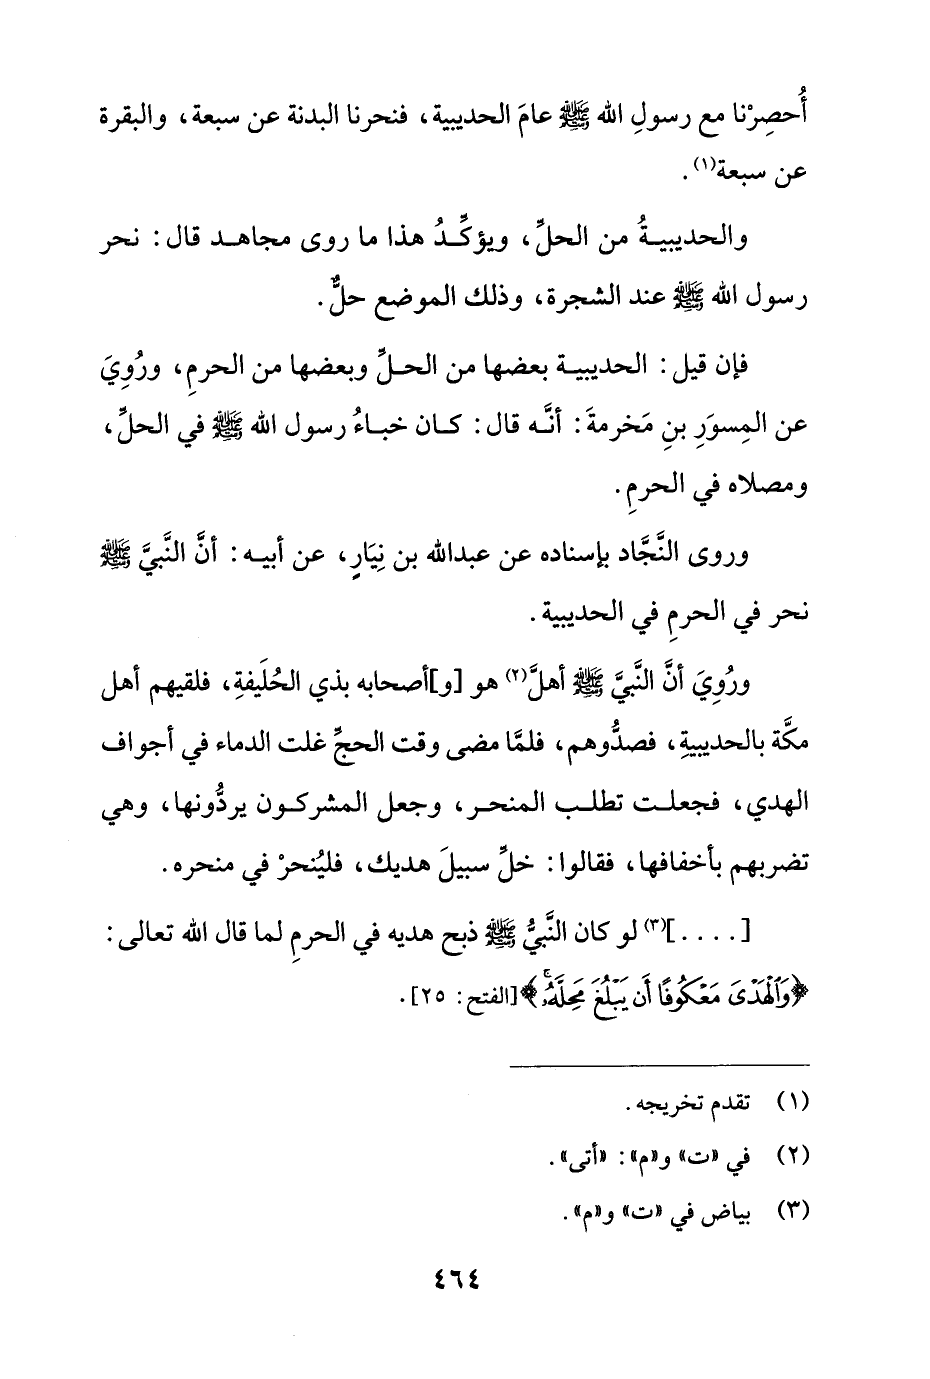 أُحصِرْنا مع رسولِ الله ﷺ عامَ الحديبية، فنحرنا البدنة عن سبعة، والبقرة
عن سبعة(١).
والحديبيـةُ من الحلِّ، ويؤكِّـدُ هذا ما روى مجاهـد قال: نحر
رسول الله ﷺ عند الشجرة، وذلك الموضع حلٌّ.
فإن قيل: الحديبيـة بعضها من الحـلِّ وبعضها من الحرمِ، ورُوِيَ
عن المِسوَرِ بنِ مَخرمةَ: أنَّـه قال: كـان خبـاءُ رسول الله ﷺ في الحلِّ،
ومصلاه في الحرمِ.
وروى النَّجَّاد بإسناده عن عبدالله بن نِيَارٍ، عن أبيـه: أنَّ النَّبيَّ ﷺ
نحر في الحرمِ في الحديبية.
ورُوِيَ أنَّ النَّبيَّ ﷺ أهلَّ(٢) هو [و]أصحابه بذي الحُلَيفةِ، فلقيهم أهل
مكَّة بالحديبيةِ، فصدُّوهم، فلمَّا مضى وقت الحجِّ غلت الدماء في أجواف
الهدي، فجعلـت تطلـب المنحـر، وجعل المشركـون يردُّونها، وهي
تضربهم بأخفافها، فقالوا: خلِّ سبيلَ هديك، فليُنحرْ في منحره.
[....](٣) لو كان النَّبيُّ ﷺ ذبح هديه في الحرمِ لما قال الله تعالى:
﴿وَٱلْهَدْىَ مَعْكُوفًا أَن يَبْلُغَ مَحِلَّهُۥۚ﴾[الفتح: ٢٥].
(١) تقدم تخريجه.
(٢) في «ت» و«م»: «أتى».
(٣) بياض في «ت» و«م».
٤٦٤